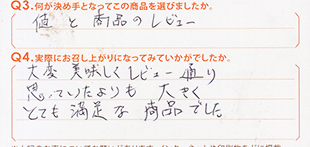 Q3.何が決め手となってこの商品を選びましたか。
値と商品のレビュー
Q4.実際にお召し上がりになってみていかがでしたか。
大変美味しくレビュー通り
思っていたよりも大きく
とても満足な商品でした